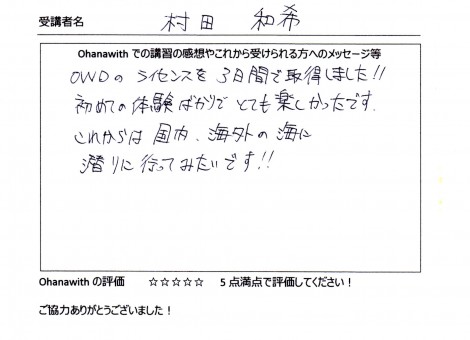 受講者名 村田 和希
Ohanawith での講習の感想やこれから受けられる方へのメッセージ等
OWDの ライセンスを 3日間で取得しました!!
初めての体験ばかりで とても楽しかったです.
これからは 国内、海外の海に
潜りに行ってみたいです!!
Ohanawith の評価 ☆☆☆☆☆ 5 点満点で評価してください！
ご協力ありがとうございました！